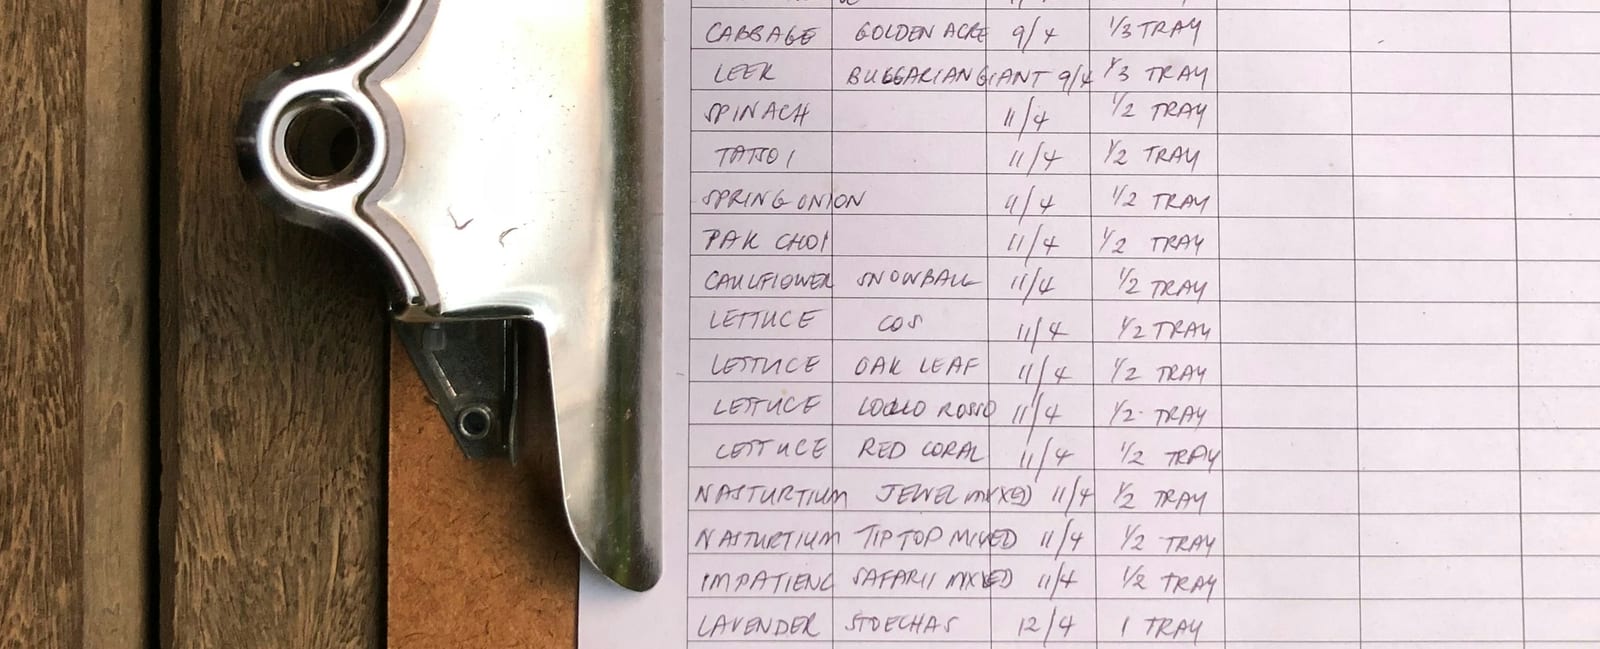 CABBAGE GOLDEN ACRE 9/4 1/3 TRAY
LEEK BULGARIAN GIANT 9/4 1/3 TRAY
SPINACH 11/4 1/2 TRAY
TATSOI 11/4 1/2 TRAY
SPRING ONION 11/4 1/2 TRAY
PAK CHOI 11/4 1/2 TRAY
CAULIFLOWER SNOWBALL 11/4 1/2 TRAY
LETTUCE COS 11/4 1/2 TRAY
LETTUCE OAK LEAF 11/4 1/2 TRAY
LETTUCE LOLLO ROSSO 11/4 1/2 TRAY
LETTUCE RED CORAL 11/4 1/2 TRAY
NASTURTIUM JEWEL MIXED 11/4 1/2 TRAY
NASTURTIUM TIP TOP MIXED 11/4 1/2 TRAY
IMPATIENC SAFARII MIXED 11/4 1/2 TRAY
LAVENDER STOECHAS 12/4 1 TRAY